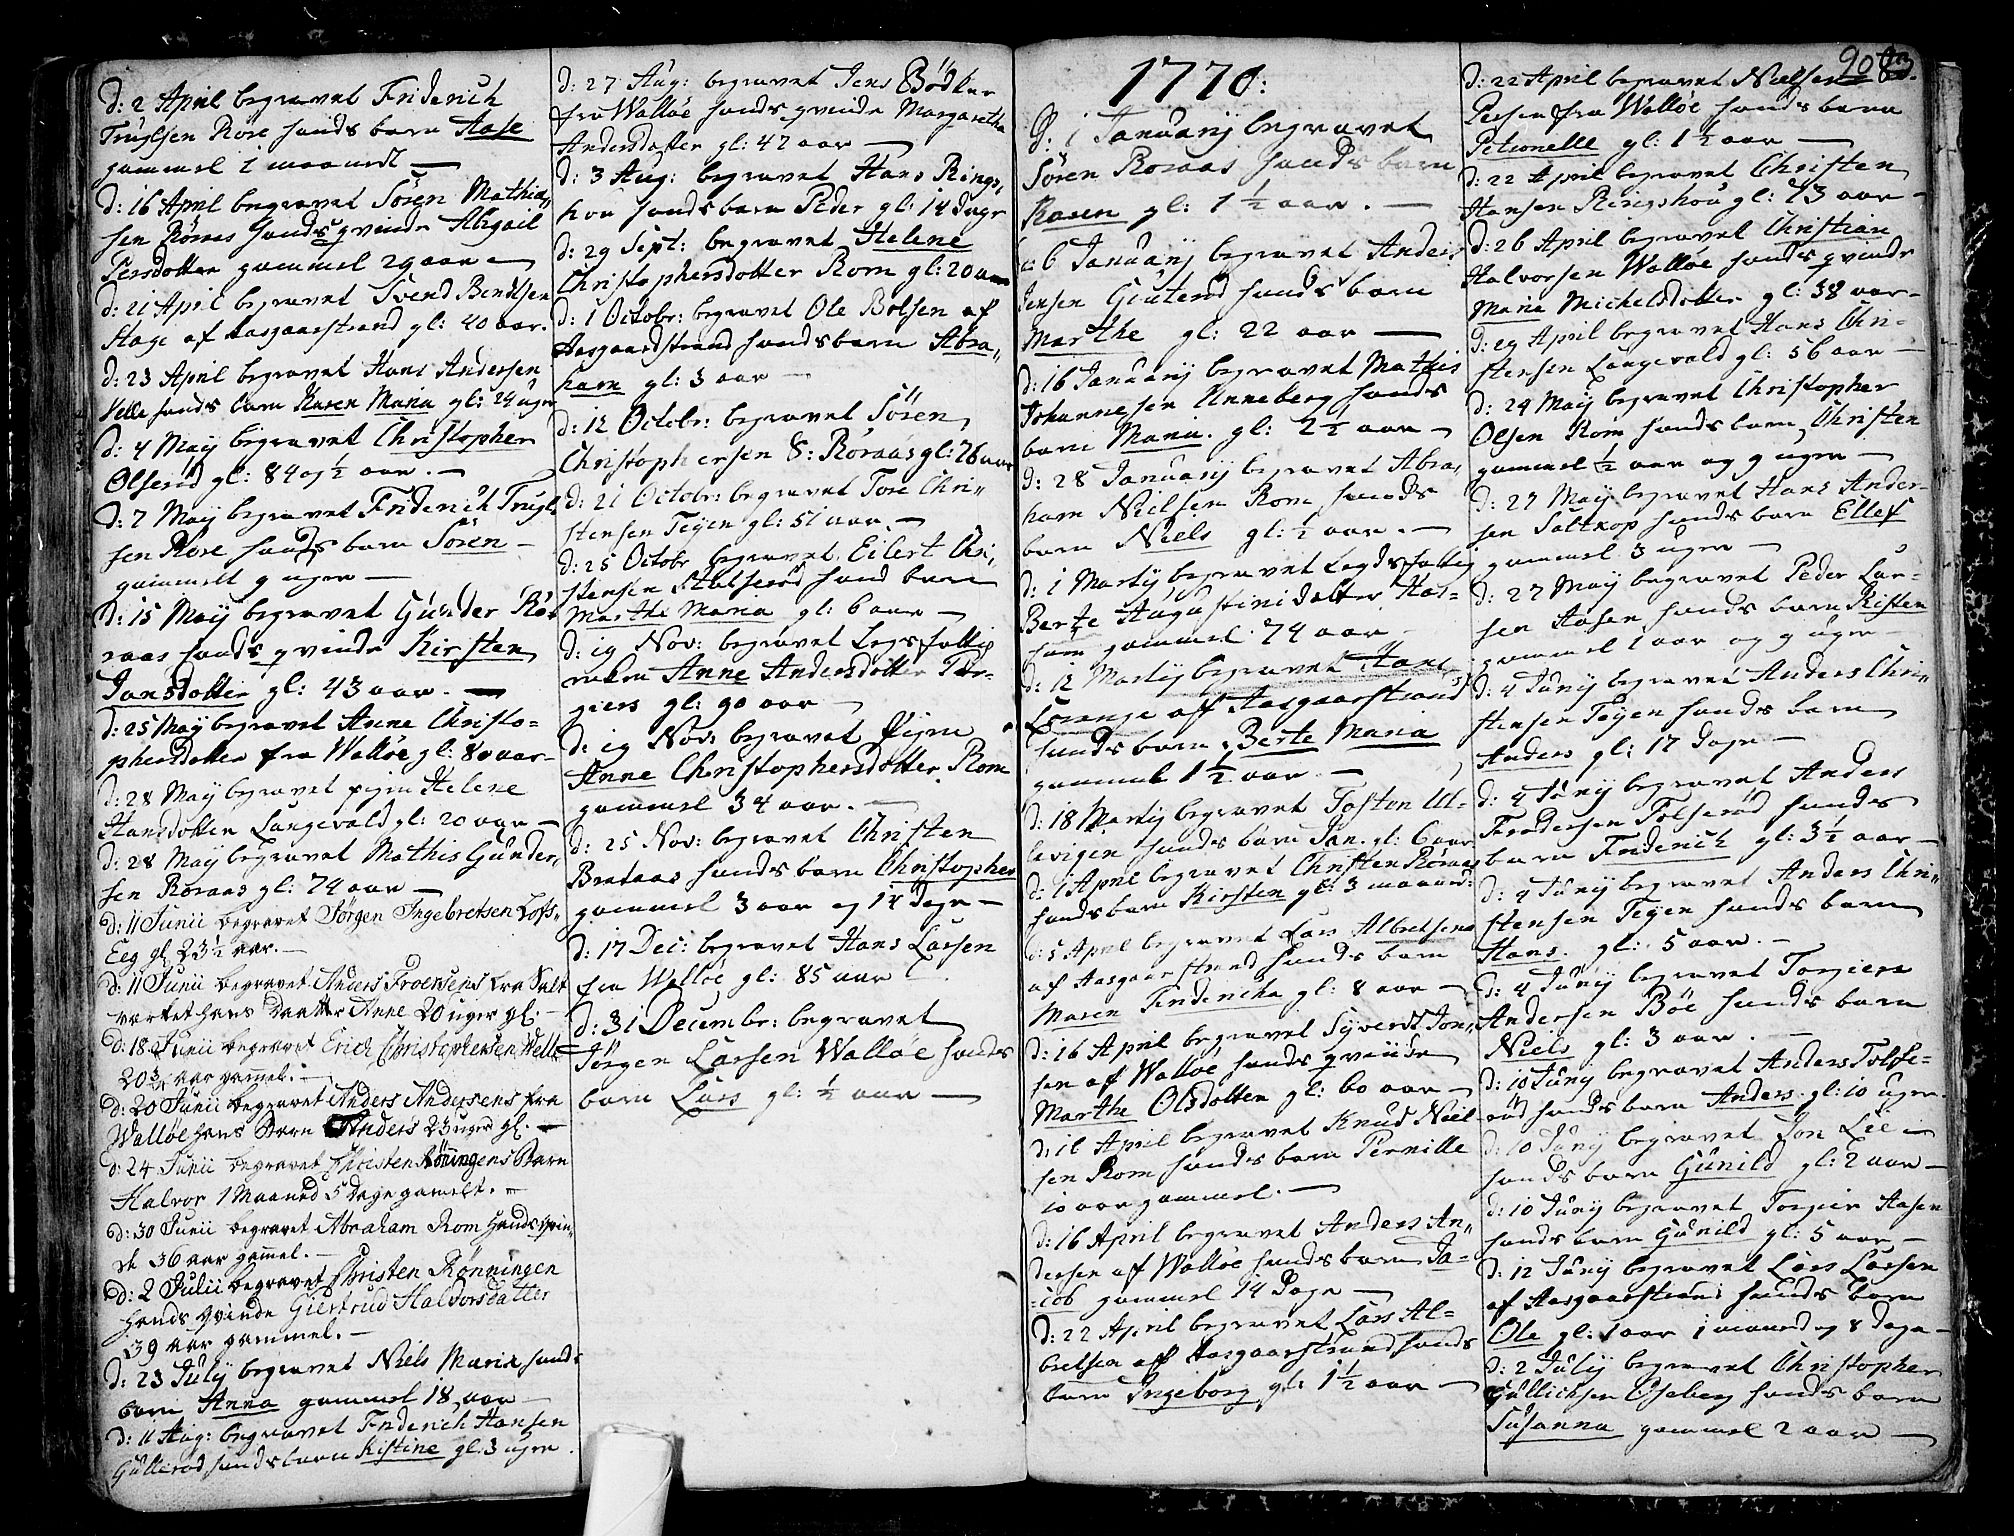 d: 2 April begravet Friderich
Truglsen Røre hands barn Aase
gammel 1 maanedt —
d: 16 April begravet Sören Mathia„
sen Röraas hands qvinde Abigail
Persdotter gammel 29 aar —
d: 21 April begravet Svend Bendtsen
Stage af Aasgaarstrand gl: 40 aar.
d: 23 April begravet Hans Andersen
Velle hands barn Karen Maria gl: 24 uger
d: 4 May begravet Christopher
Olserød gl: 84 og ½ aar. —
d: 7 May begravet Friderich Trugl
sen Røre hands barn Sören —
gammelt 9 uger —
d: 15 May begravet Gunder Rø„
raas hands qvinde Kirsten
Jansdotter gl: 43 aar. —
d: 25 May begravet Anne Christo=
phersdotter fra Walløe gl: 80 aar —
d: 28 May begravet pigen Helene
Hansdotter Langevald gl: 20 aar —
d: 28 May begravet Mathis Gunder„
sen Röraas gl: 74 aar —
d: 11 Junii begravet Jørgen Ingebretsen Lofts„
Eeg gl 23½ aar. —
d: 11 Junii begravet Anders Froensens fra Salt
værket hans Daatter Anne 20 uger gl. —
d: 18 Junii begravet Erich Christophersen Velle
20¾ aar gammel. —
d: 20 Junii begravet Anders Andersens fra
Walløe hans Barn Anders 23 uger gl. —
d: 24 Junii begravet Christen Rönningens Barn
Halvor 1 Maaned 5 Dage gamelt. —
d: 30 Junii begravet Abraham Rom hands qvin„
de 36 aar gammel. —
d: 2 Julii begravet Christen Rønningen
hands qvinde Giertrud Halvorsdatter
39 aar gammel. —
d: 23 July begravet Niels Maria hands
barn Anna gammel 18 aar —
d: 11 Aug: begravet Friderich Hansen
Gullerød hands barn Kistine gl: 3 uger.
d: 27 Aug: begravet Jens Bödker
fra Walløe hands qvinde Margaretha
Andersdotter gl: 47 aar —
d: 3 Aug: begravet Hans Rings„
hou hands barn Peder gl: 14 dage
d: 29 Sept: begravet Helene
Christophersdotter Rom gl: 20 aar
d: 1 Octobr: begravet Ole Bolsen af
Aasgaardstrand hands barn Abra„
ham gl: 3 aar —
d: 12 Octobr: begravet Sören
Christophersen S: Röraas gl: 76 aar
d: 21 Octobr: begravet Tore Chri„
stensen Teyen gl: 51 aar. —
d: 25 Octobr begravet Eilert Chri„
stensen Stulserød hand barn
Marthe Maria gl: 6 aar —
d: 19 Nov: begravet Legsfattig
enken Anne Andersdotter Tor=
giers gl: 90 aar —
d: 19 Nov: begravet Pigen
Anne Christophersdotter Rom
gammel 34 aar. —
d: 25 Nov: begravet Christen
Brataas hands barn Christopher
gammel 3 aar og 14 dage —
d: 17 Dec: begravet Hans Larsen
fra Walløe gl: 85 aar —
d: 31 Decembr: begravet
Jörgen Larsen Walløe hands
barn Lars gl: ½ aar —
1770:
d: 1 January begravet
Sören Roraas hands barn
Karen gl: 1½ aar. —
d: 6 January begravet Anders
Jensen Giuterød hands barn
Marthe gl: 22 aar —
d: 16 January begravet Mathis
Johannesen Unneberg hands
barn Maria. gl: 2½ aar —
d: 28 January begravet Abra„
ham Nielsen Rom hands
barn Niels gl: ½ aar. —
d: 1 Martij begravet Legdsfattig
Berte Augustini dotter Has=
houd gammel 74 aar —
d: 12 Martij begravet Hans
Lorange af Aasgaarstrand
hands barn Berte Maria
gammel 1½ aar —
d: 18 Martij begravet Tosten Ul=
levigen hands barn Jan. gl: 6 aar
d: 1 April begravet Christen Röraas
hands barn Kirsten gl: 3 maaned:
d: 5 April begravet Lars Albretsen
af Aasgaarstrand hands barn
Maren Fridericha gl: 8 aar —
d: 16 April begravet Syverdt Jon„
sen af Walløe hands qvinde
Marthe Olsdotter gl: 60 aar —
d: 16 April begravet Knud Niel
sen Rom hands barn Pernille
10 aar gammel. —
d: 16 April begravet Anders An„
dersen af Walløe hands barn Ja=
=cob gammel 14 Dage —
d: 22 April begravet Lars Al=
bretsen af Aasgaarstrand hands
barn Ingeborg gl: 1½ aar —
90
d: 22 April begravet Nielsen
Persen fra Walløe hands barn
Petronelle gl: 1½ aar —
d: 22 April begravet Christen
Hansen Ringshou gl: 73 aar —
d: 26 April begravet Christian
Halvorsen Walløe hands qvinde
Maria Michelsdotter gl: 38 aar —
d: 29 April begravet Hans Chri=
stensen Langevald gl: 56 aar —
d: 24 May begravet Christopher
Olsen Rom hands barn Christen
gammel ½ aar og 9 uger —
d: 27 May begravet Hans Ander=
sen Saltkop hands barn Ellef
gammel 3 uger —
d: 27 May begravet Peder Lar=
sen Aasen hands barn Kisten
gammel 1 aar og 9 uger —
d: 4 Juny begravet Anders Chri„
stensen Teyen hands barn
Anders gl: 17 Dage —
d: 4 Juny begravet Anders
Fredersen Tolserød hands
barn Friderich gl: 3½ aar —
d: 4 Juny begravet Anders Chri„
stensen Teyen hands barn
Hans. gl: 5 aar. —
d: 4 Juny begravet Torgiers
Andersen Böe hands barn
Niels gl: 3 aar. —
d: 10 Juny begravet Anders Tolse=
röd hands barn Anders. gl: 10 uger.
d: 10 Juny begravet Jon Lie —
hands barn Gunild gl: 2 aar —
d: 10 Juny begravet Torgier Aasen
hands barn Gunild gl: 5 aar —
d: 12 Juny begravet Lars Larsen
af Aasgaarstrand hands barn
Ole gl: 1 aar 1 maaned og 8 dage —
d: 2 July begravet Christopher
Gullichsen Oseberg hands barn
Susanna gammel 2 aar —